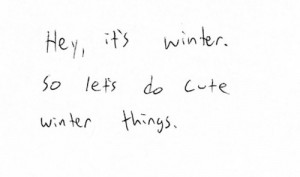 Hey, it's winter.
So let's do cute
winter things.